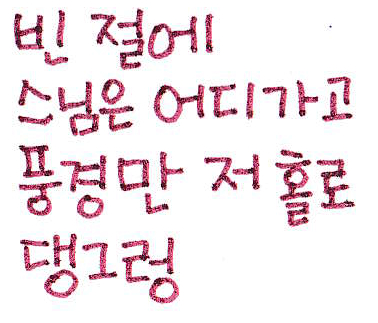 빈 절에
스님은 어디가고
풍경만 저 홀로
댕그렁